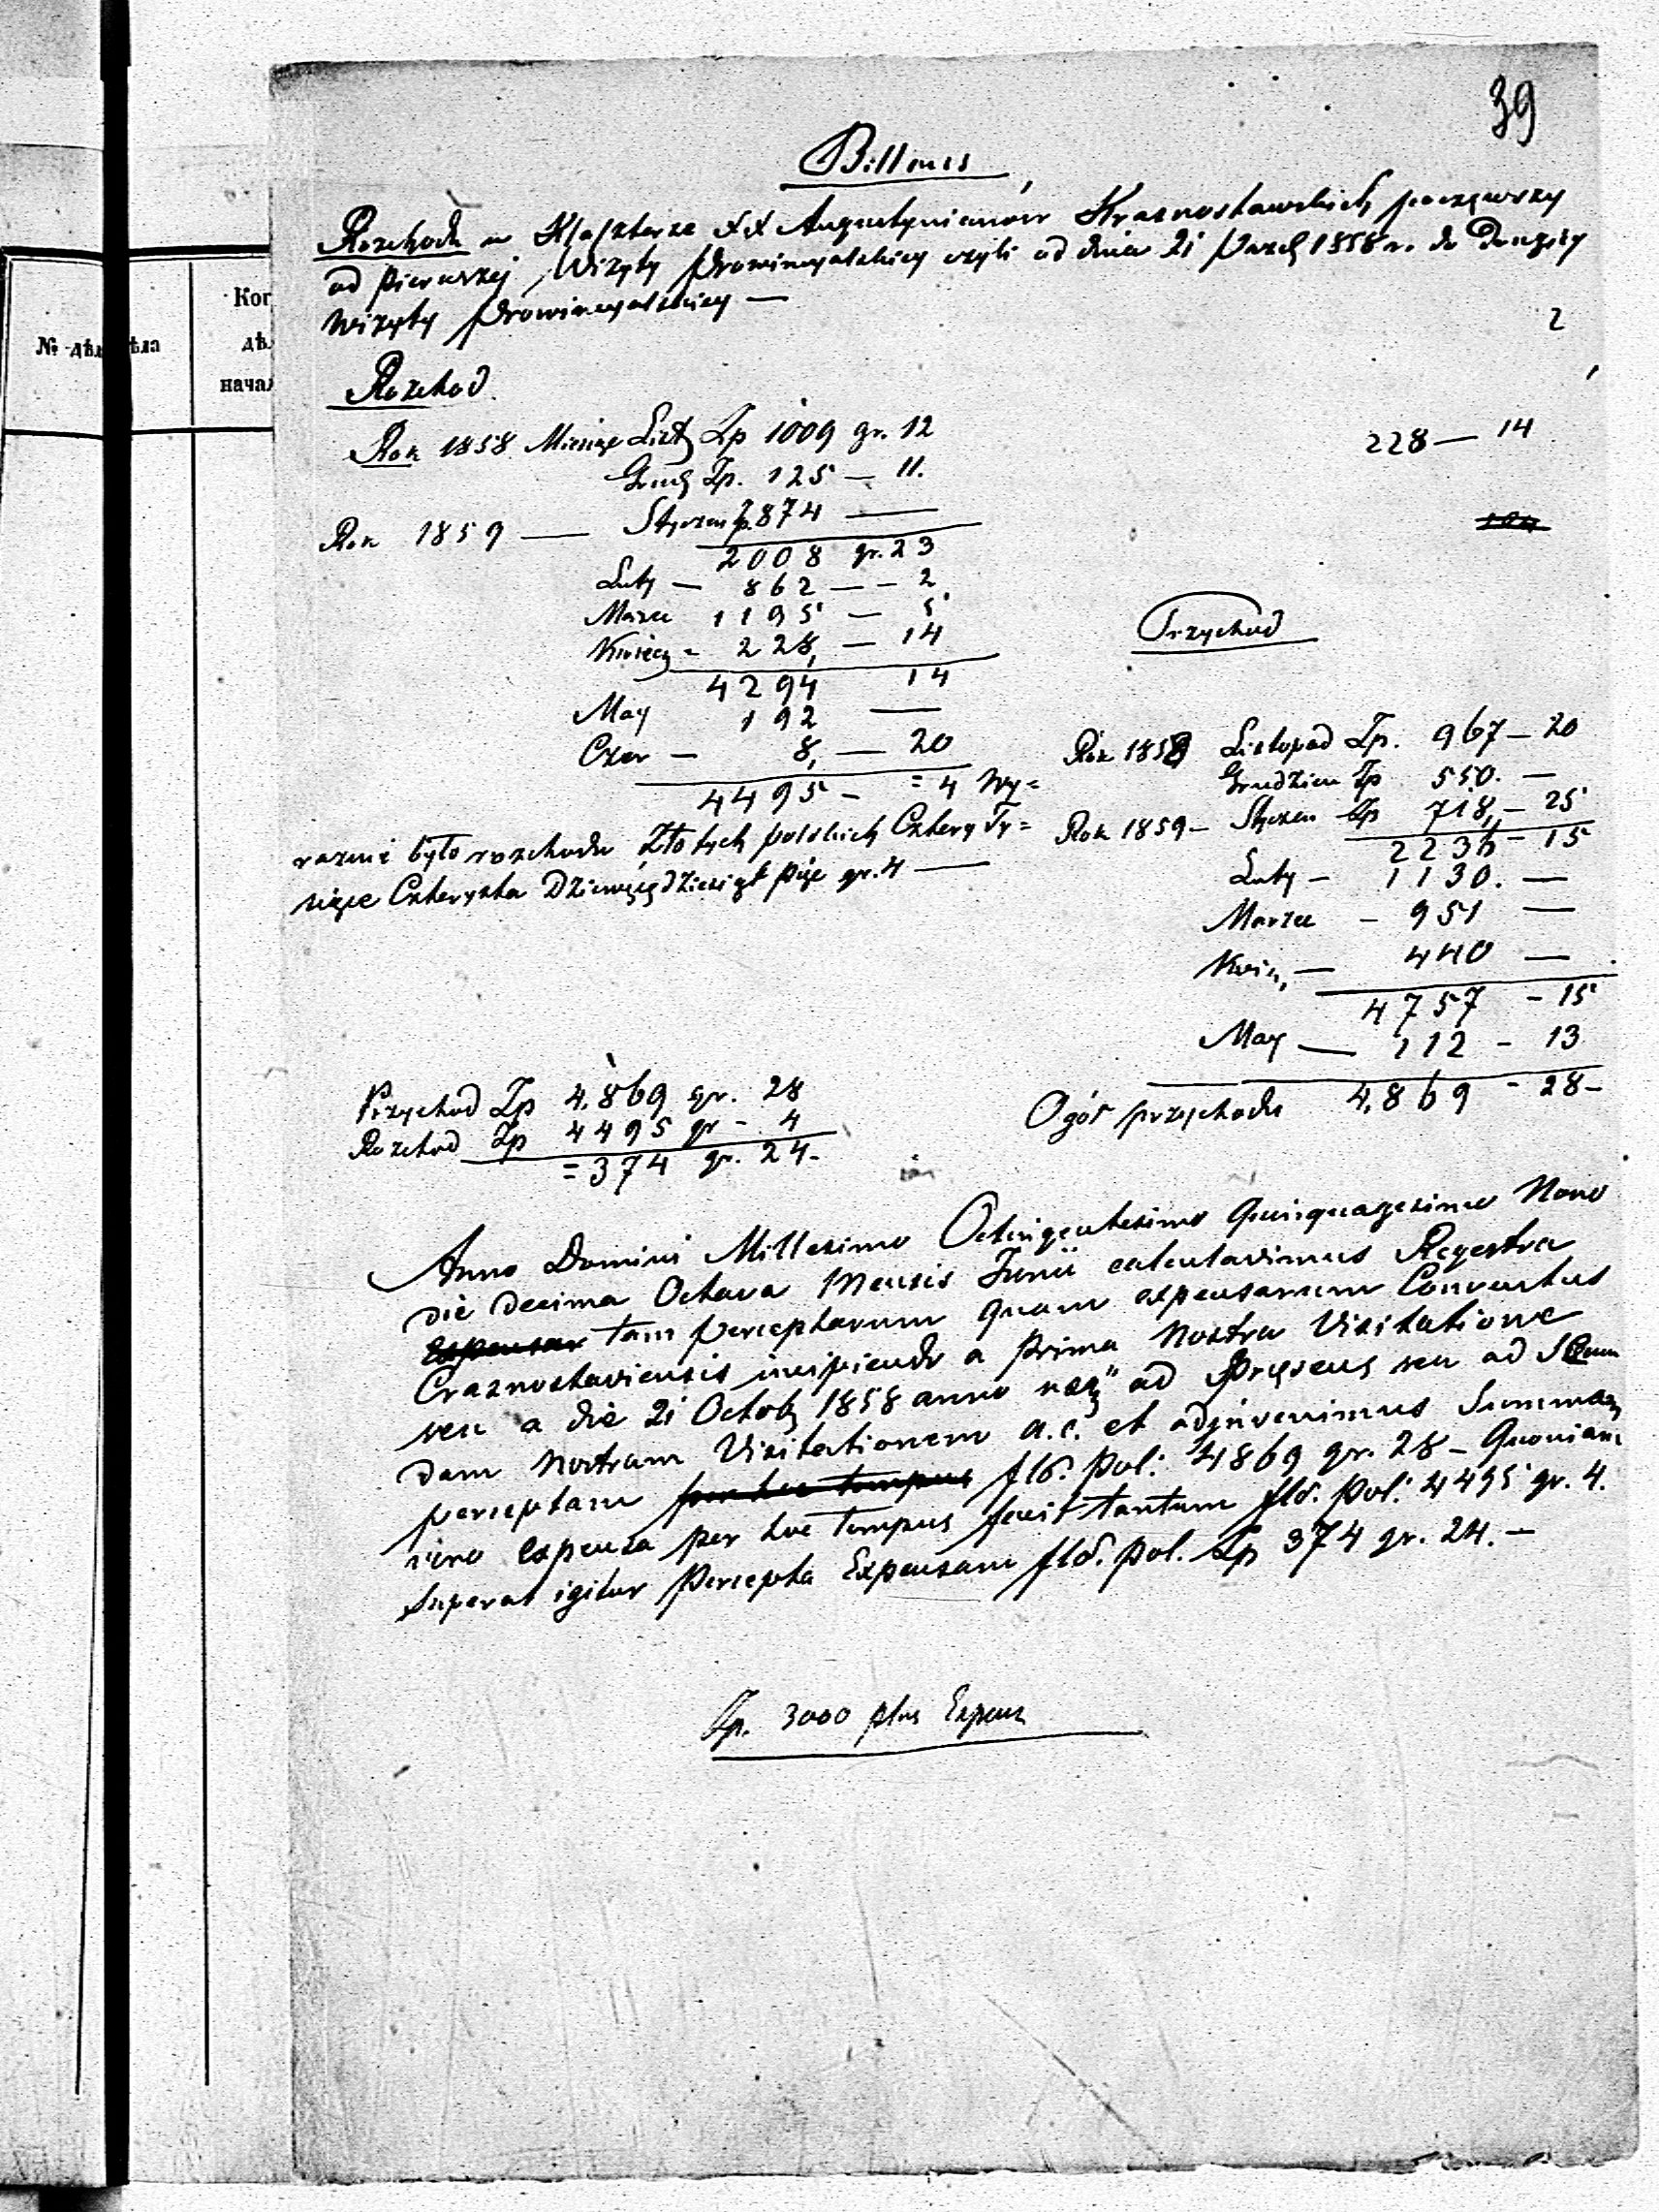 39
Billans
Rozchodu w Klasztorze XX Augustynianów Krasnostawskich począwszy
od pierwszej Wizyty Prowincyalskiey czyli od dnia 21 Paźd 1858 r. do Drugiey
Wizyty Prowincyalskiey —
2
Rozchod
Rok 1858 Miesiąc List Zp 1009 gr. 12
228 — 14
Grud Zp. 125 — 11.
Rok 1859 — Styczeń Zp. 874 —
2008 gr. 23
Luty — 862 — — 2
Marzec 1195 — 5
Kwiec - 228, — 14
4294 14
May 192 —
Czer — 8, — 20
4495 — = 4 Wy=
raźnie było rozchodu Złotych polskich Cztery Ty=
siące Czterysta Dziewięćdziesiąt pięć gr. 4 —
Przychod
Rok 1858 Listopad Zp. 967 — 20
Grudzień Zp 550. —
Rok 1859 — Styczeń Zp 718, — 25
2236 — 15
Luty — 1130. —
Marzec — 951 —
Kwie, — 440 —
4757 — 15
May — 112 - 13
Ogół przychodu 4,869 - 28 —
Przychod Zp 4,869 gr. 28
Rozchod Zp 4495 gr - 4
= 374 gr. 24 -
Anno Domini Millesimo Octingentesimo Quinquagesimo Nono
die decima Octava Mensis Junii calculavimus Regestra
Expensar tam perceptarum quam expensarum Conventus
Crasnostaviensis incipiendo a Prima Nostra Visitatione
seu a die 21 Octob 1858 anno ad Pręsens seu ad
dam nostram Visitationem a. c. et adjnvenimus Summam
perceptam per hoc tempus flo. Pol: 4869 gr. 28 — Quoniam
vero Expensa per hoc tempus fecit tantum flo. Pol: 4495 gr. 4.
Superat igitur Percepta Expensam flo. Pol. Zp 374 gr. 24. —
Zp. 3000 plus Expens
№ дѣла
Ког
дѣ
начал